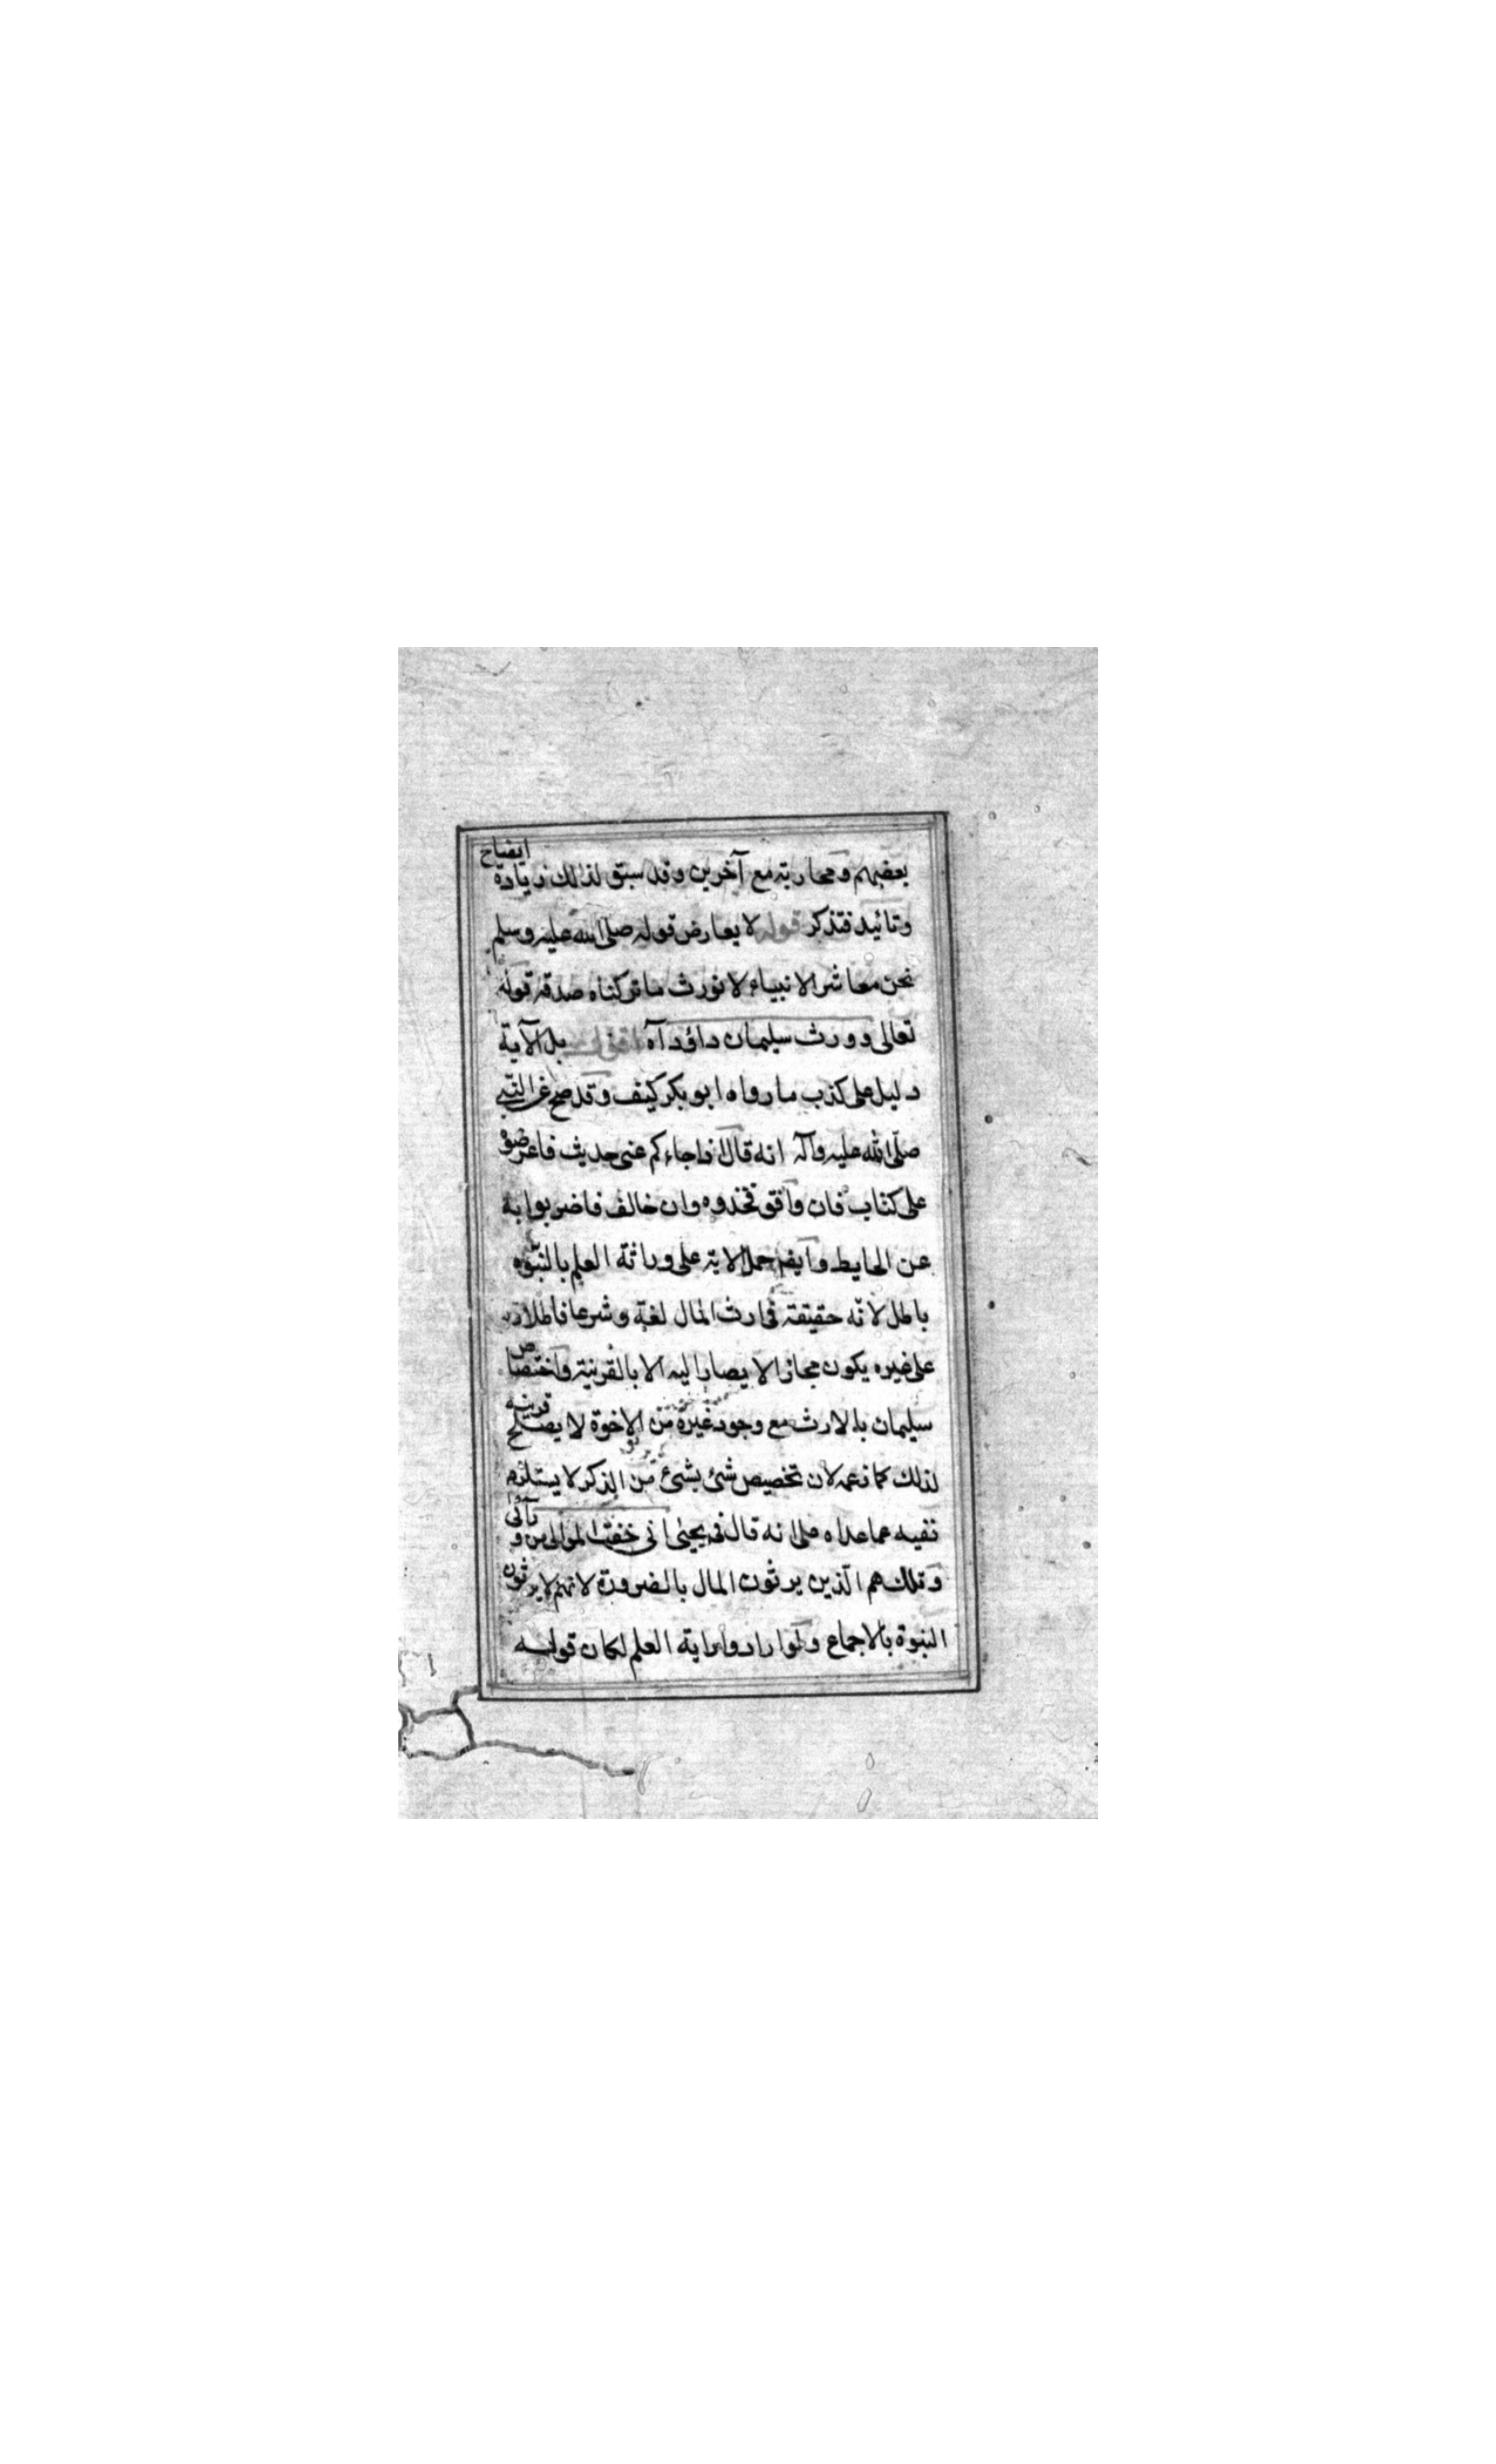 بعضهم ومحاربته مع آخرين وقد سبق لذلك زيادة ايضاح
وتائيد فتذكر قوله لا يعارض قوله صلى الله عليه وسلم
نحن معاشر الانبياء لا نورث ما تركناه صدقة قوله
تعالى وورث سليمان داؤد آه اقول بل الآية
دليل على كذب ما رواه ابو بكر كيف وقد صح عن النبي
صلى الله عليه وآله انه قال اذا جاءكم عني حديث فاعرضوه
على كتاب فان وافق فخذوه وان خالف فاضربوا به
عن الحايط وايضا حمل الاية على وراثة العلم بالنبوه
باطل لانه حقيقة في ارث المال لغة وشرعا فاطلاقه
على غيره يكون مجازا لا يصار اليه الا بالقرنية واختصاص
سليمان بالارث مع وجود غيره من الاخوة لا يصلح قرينه
لذلك كما زعمه لان تخصيص شئ بشئ من الذكر لا يستلزم
نفيه عما عداه على انه قال في يحيى اني خفت الموالي من ورآئى
وتلك هم الذين يرثون المال بالضرورة لانهم لا يرثون
النبوة بالاجماع ولو اراد وراثة العلم لكان قوله